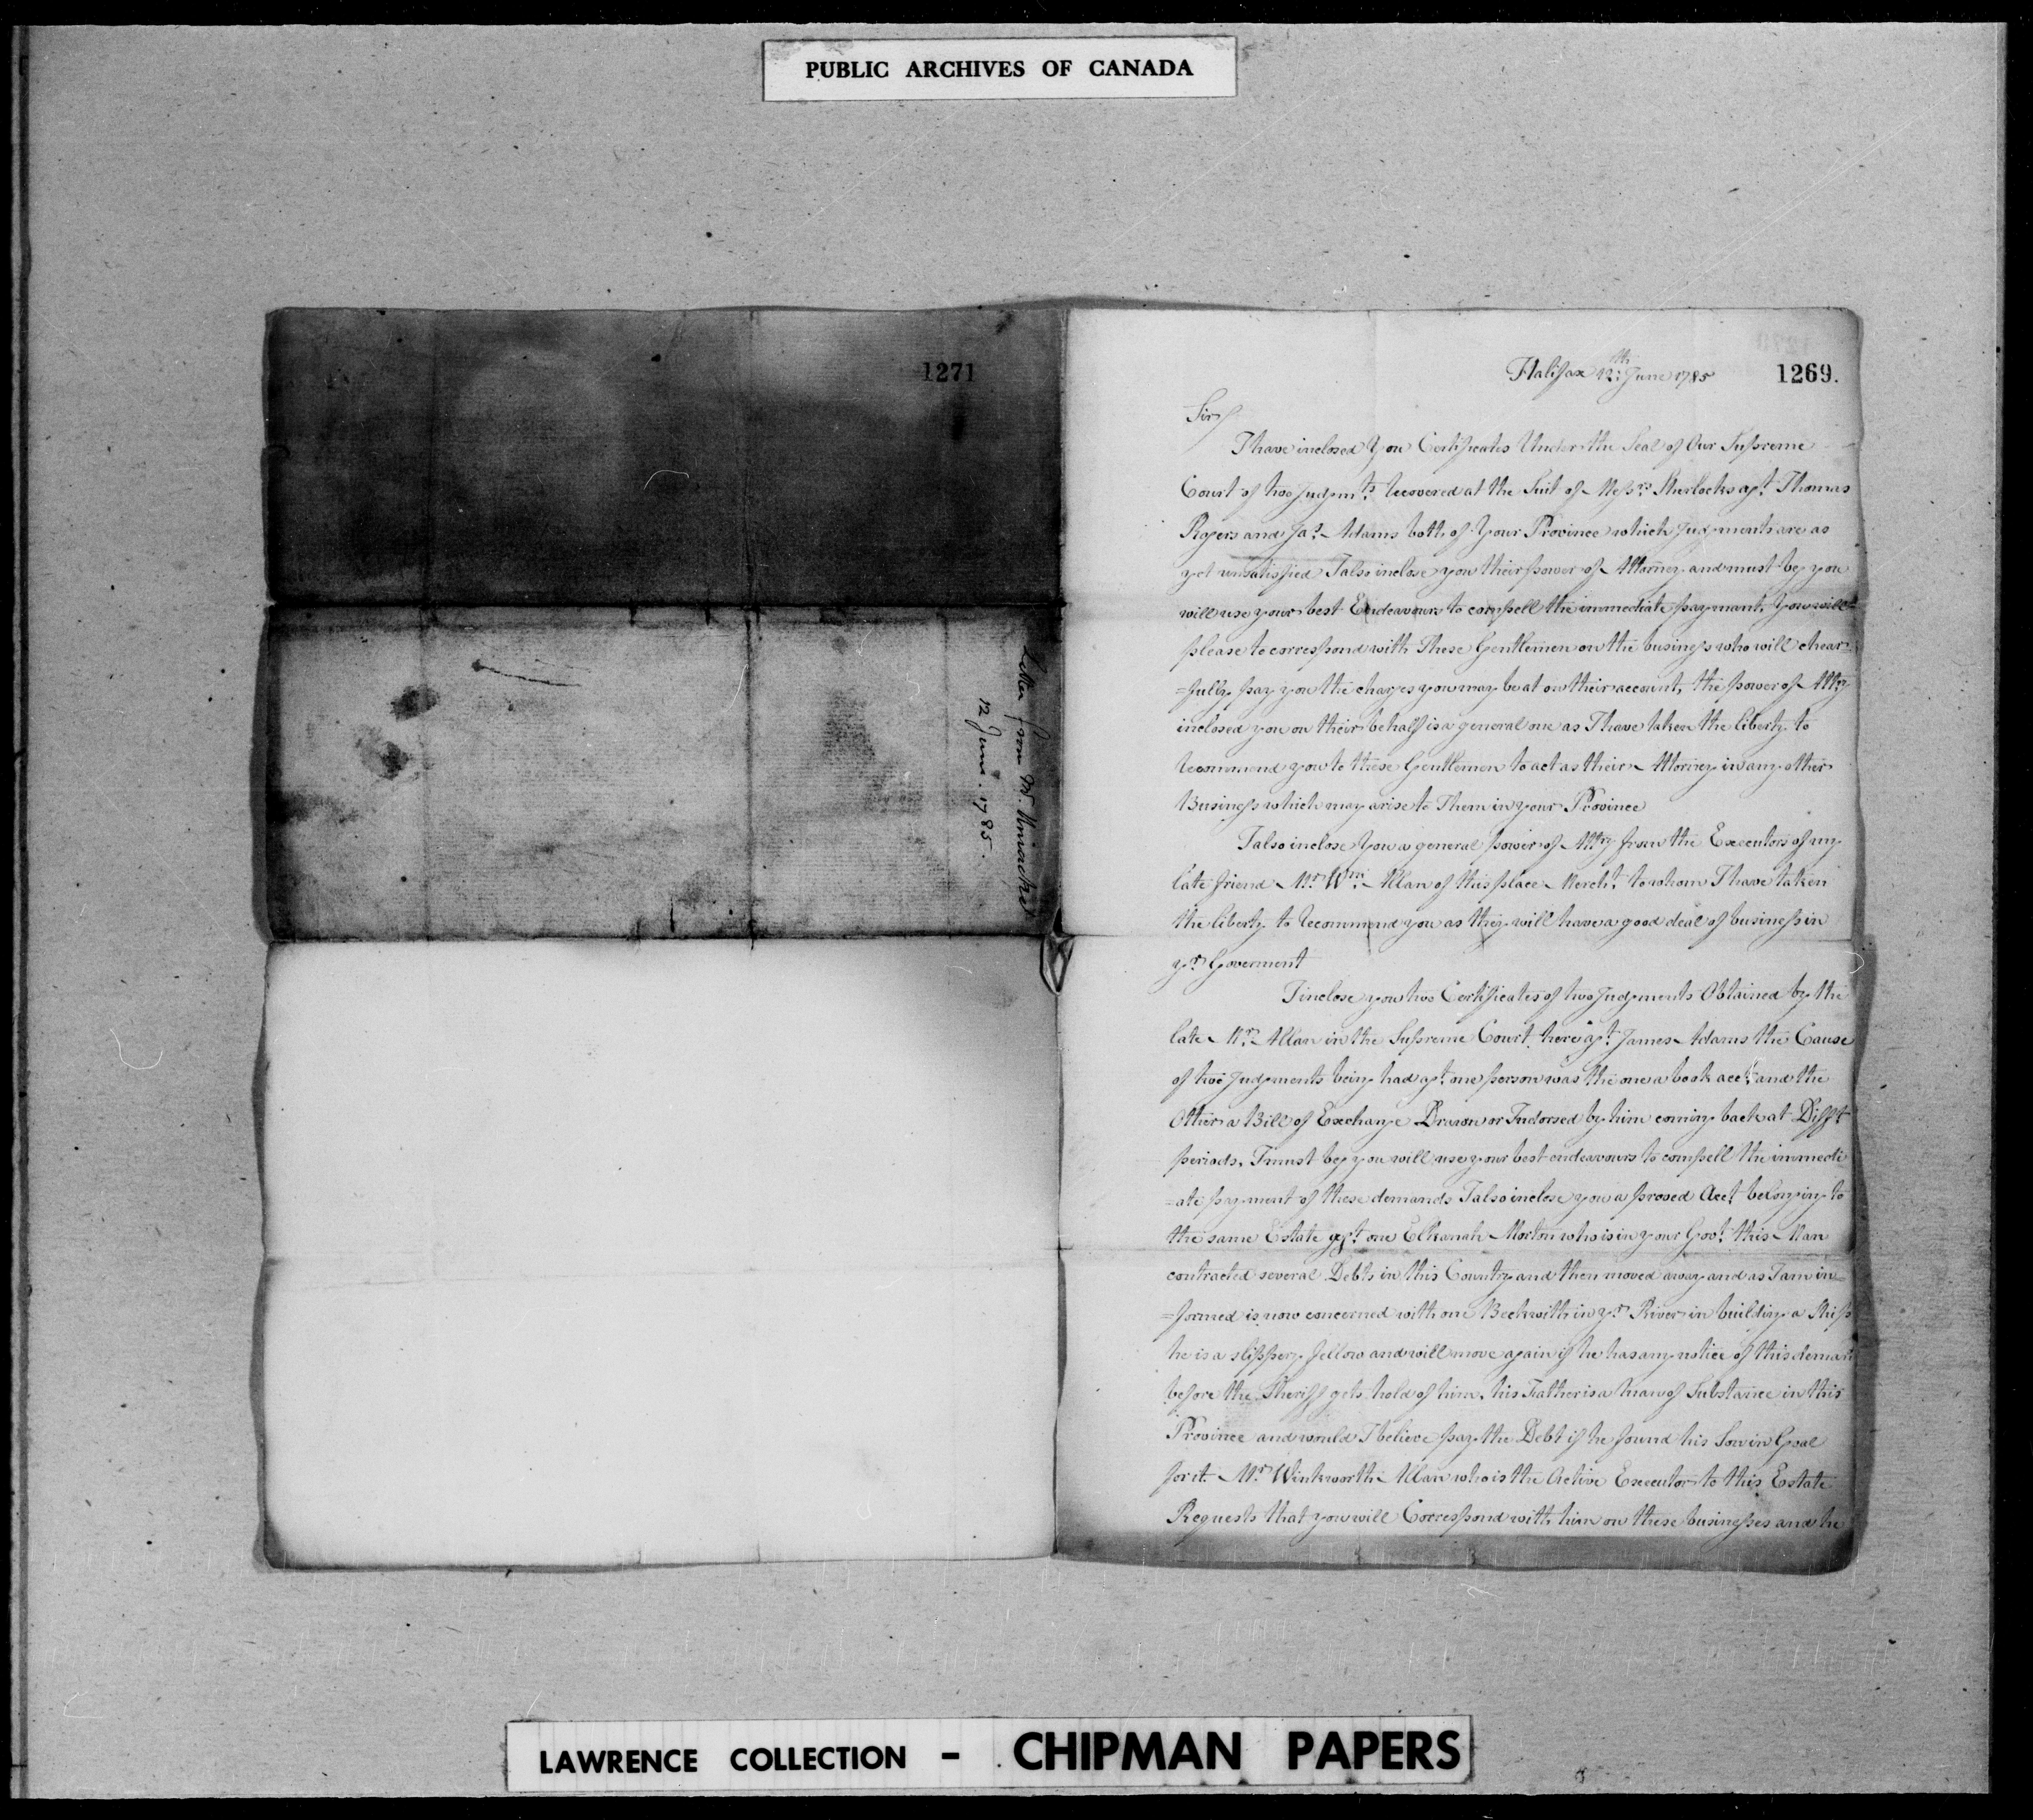 PUBLIC ARCHIVES OF CANADA
1271
Letter from Mr. Uniacke
12 June. 1785.
1269.
Halifax 12th June 1785
Sir
I have inclosed You Certificates Under the Seal of Our Supreme
Court of two Judgmts. Recovered at the Suit of Messrs. Sherlocks agt. Thomas
Rogers and Jas. Adams both of Your Province which Judgments are as
yet unsatisfied I also inclose you their power of Attorney and must beg you
will use your best Endeavours to compell the immediate payment, You will
please to correspond with These Gentlemen on the business who will chear=
=fully pay you the charges you may be at on their account, the power of Attry
inclosed you on their behalf is a general one as I have taken the liberty to
Recommend you to these Gentlemen to act as their Attorney in any other
Business which may arise to Them in your Province
I also inclose You a general power of Attry from the Executors of my
late friend Mr. Wm. Allan of this place Mercht. to whom I have taken
the liberty to Recommend you as they will have a good deal of business in
yr. Goverment
I inclose you two Certificates of two Judgments Obtained by the
late Mr. Allan in the Supreme Court here agt. James Adams the Cause
of two Judgments being had agt. one person was the one a book acct. and the
Other a Bill of Exchange Drawn or Indorsed by him coming back at Difft
periods, I must beg you will use your best endeavours to compell the immedi
=ate payment of these demands I also inclose you a proved Acct. belonging to
the same Estate agt. one Elkanah Morton who is in your Govt. this Man
contracted several Debts in this Country and then moved away and as I am in=
=formed is now concerned with one Beckwith in yr. River in building a Ship
he is a slippery fellow and will move again if he has any notice of this deman
before the Sheriff gets hold of him, his Father is a Man of Substance in this
Province and would I believe pay the Debt if he found his Son in Goal
for it. Mr. Winkworth Allan who is the Active Executor to this Estate
Requests that you will Correspond with him on these businesses and he
LAWRENCE COLLECTION - CHIPMAN PAPERS